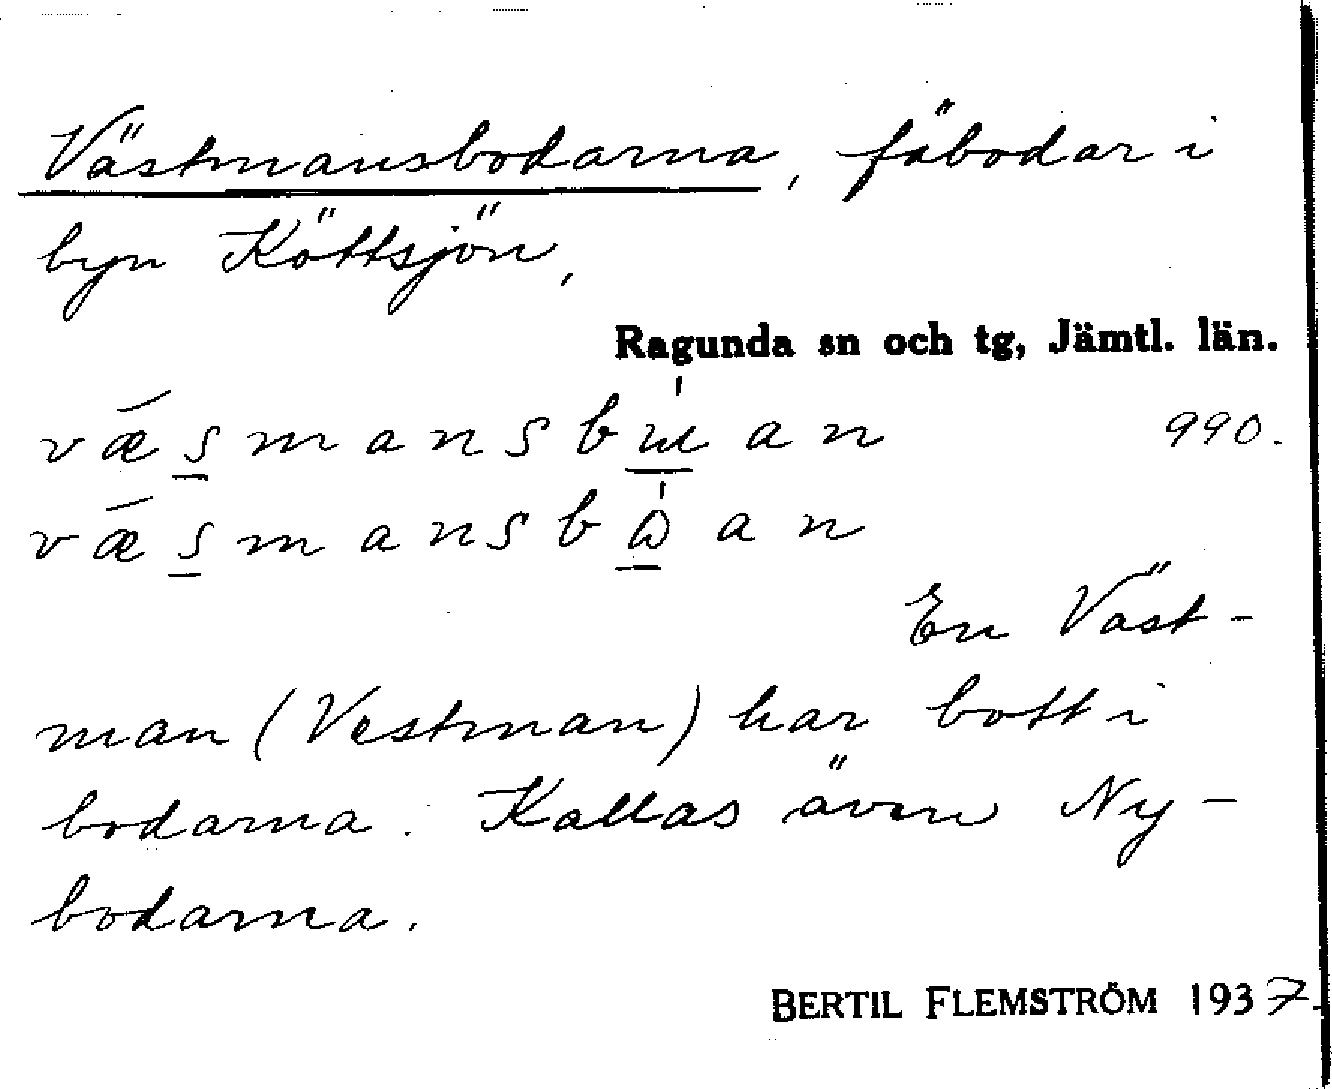 Västmansbodarna, fäbodar i
byn Köttsjön,
Ragunda sn och tg, Jämtl. län.
990.
En Väst-
man (Vestman) har bott i
bodarna. Kallas även Ny-
bodarna.
BERTIL FLEMSTRÖM 1937.